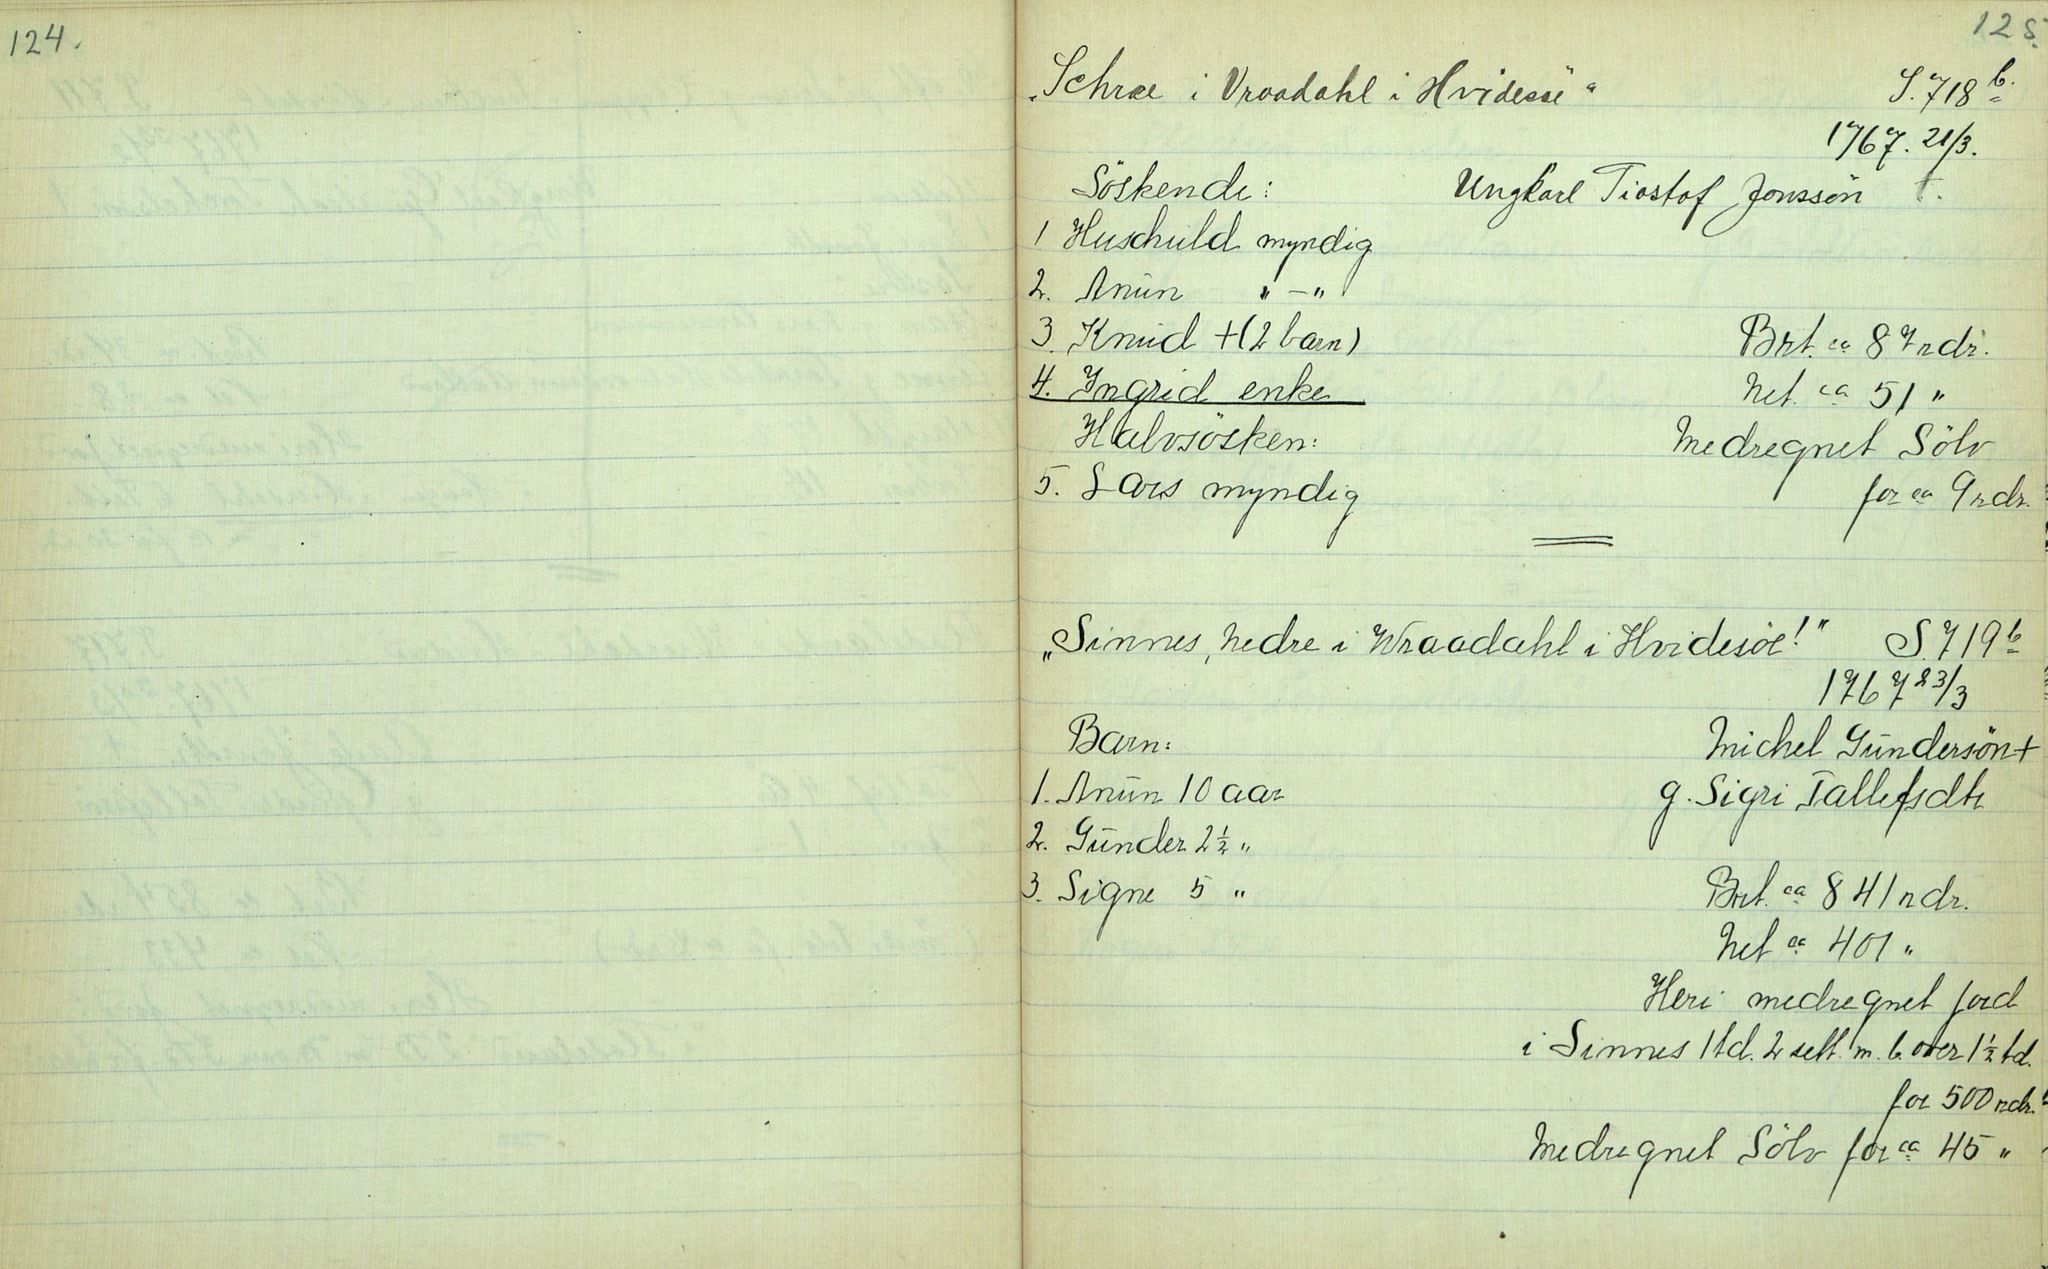 124.
125.
"Schrae i Vraadahl i Hvidesöe" S. 718 b.
1767. 21/3.
Söskende: Ungkarl Tiostof Jonssön †.
1 Huschuld myndig
2. Anün "–"
3. Knud + (2 barn) Brt. ca 87 rdr.
4. Ingrid enke Net. ca 51 "
Halvsösken: Medregnet Sölv
5. Lars myndig for ca 9 rdr.
"Sinnes, nedre i Wraadahl i Hvidesöe!" S. 719 b
1767 23/3
Barn: Michel Gündersön +
1. Anün 10 aar g. Sigri Tallefsdtr
2. Günder 2½ "
3. Signe 5 " Brt. ca 841 rdr.
Net ca 401 "
Heri medregnet jord
i Sinnes 1 td. 2 sett. m. b. over 1½ td.
for 500 rdr.
Medregnet Sölv for ca 45 "